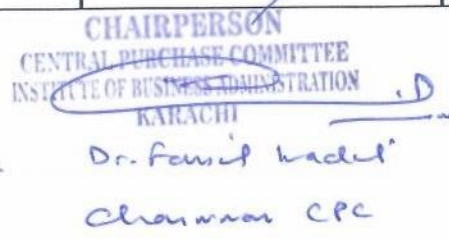 CHAIRPERSON
CENTRAL PURCHASE COMMITTEE
INSTITUTE OF BUSINESS ADMINISTRATION
KARACHI
Dr.
Chairman CPC